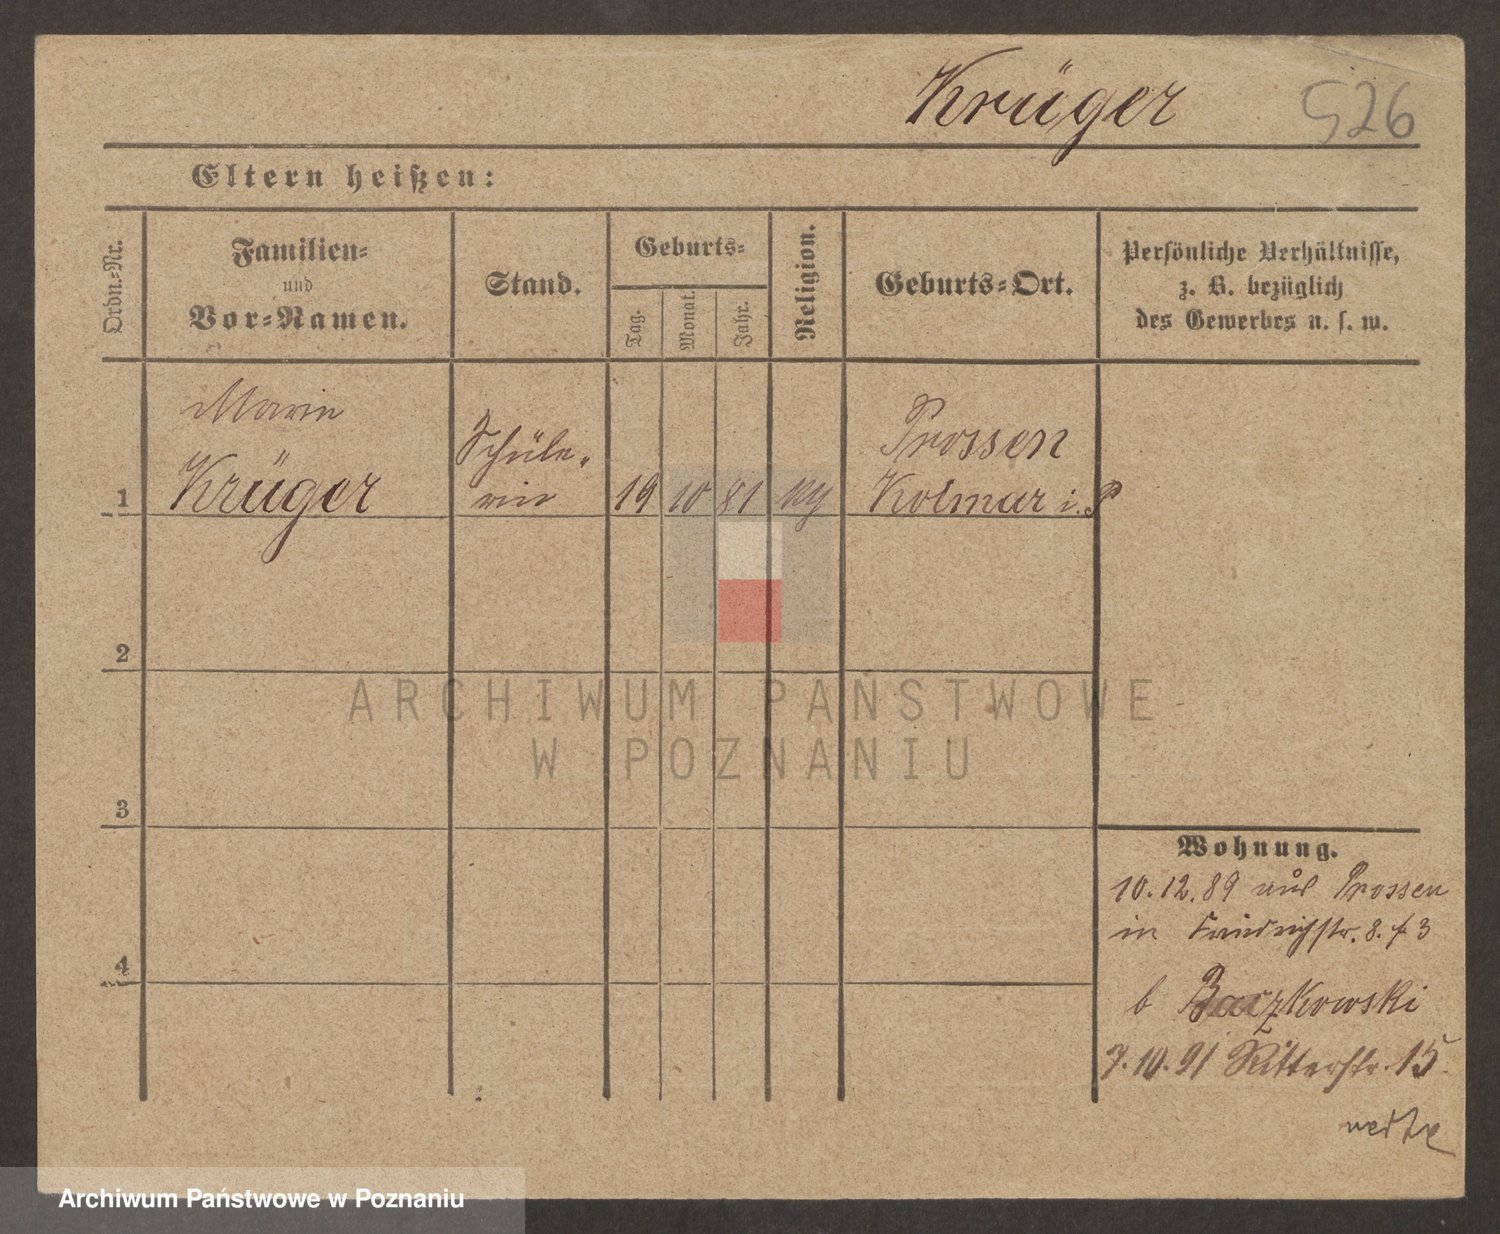 Krüger 526
Eltern heißen:
Ordn.-Nr.
Familien-
und
Vor-Namen.
Stand.
Geburts-
Tag.
Monat.
Jahr.
Religion.
Geburts-Ort.
Persönliche Verhältnisse,
z. B. bezüglich
des Gewerbes u. s. w.
Marie
Krüger
Schüle-
rin
1 19 10 81
Prossen
Kolmar i. P
2
3
4
ARCHIWUM PAŃSTWOWE
W POZNANIU
Wohnung.
10.12.89 aus Prossen
in Friedrichstr. 8. 3
b Baczkowski
7.10.91 Ritterstr. 15.
Archiwum Państwowe w Poznaniu